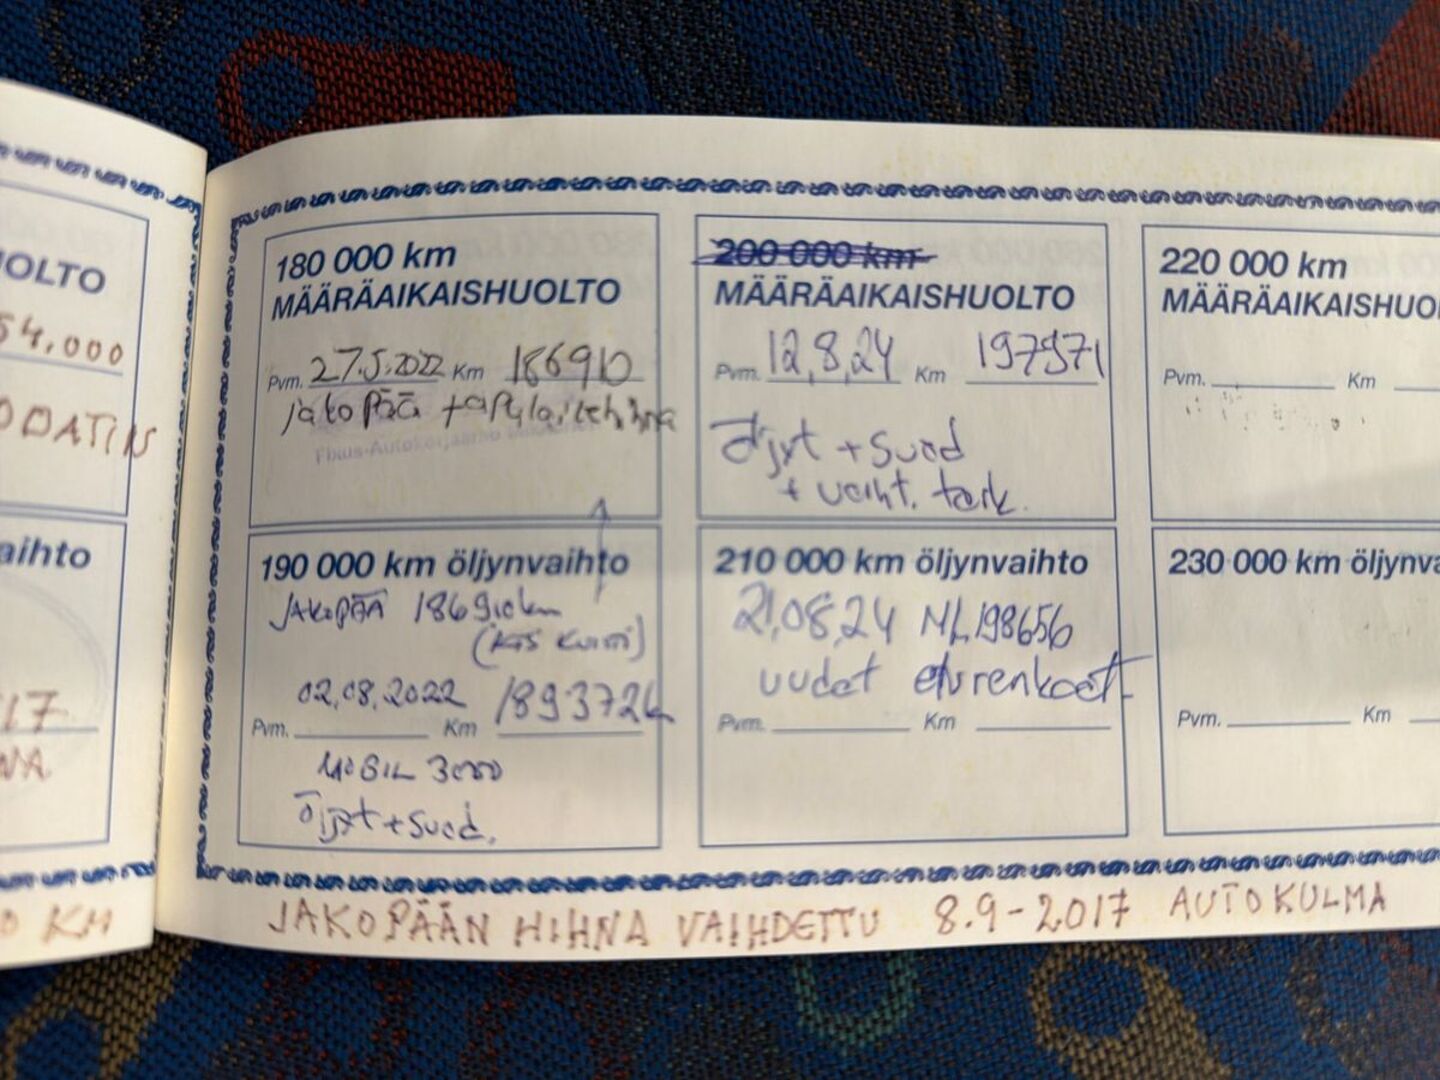 54,000
aihto
17
KM
180 000 km
MÄÄRÄAIKAISHUOLTO
Pvm. 27.5.2022 Km 186910
jakopää + apulaitehihna
190 000 km öljynvaihto
JAKOPÄÄ 186910km
02.08.2022 189372k
Pvm. Km
MOBIL 3000
Öljyt + Suod.
200 000 km
MÄÄRÄAIKAISHUOLTO
Pvm. 12.8.24 Km 197971
Öljyt + Suod
+ vaiht. tark.
210 000 km öljynvaihto
21.08.24 ML198656
uudet eturenkaat
Pvm. Km
220 000 km
MÄÄRÄAIKAISHUOL
Pvm. Km
230 000 km öljynva
Pvm. Km
JAKOPÄÄN HIHNA VAIHDETTU 8.9-2017 AUTOKULMA